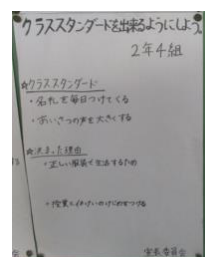 クラススタンダードを出来るようにしよう。
2年4組
☆クラススタンダード
・名札を毎日つけてくる
・あいさつの声を大きくする
☆決まった理由
・正しい服装で生活するため
・授業と休けいのけじめをつける
室長委員会